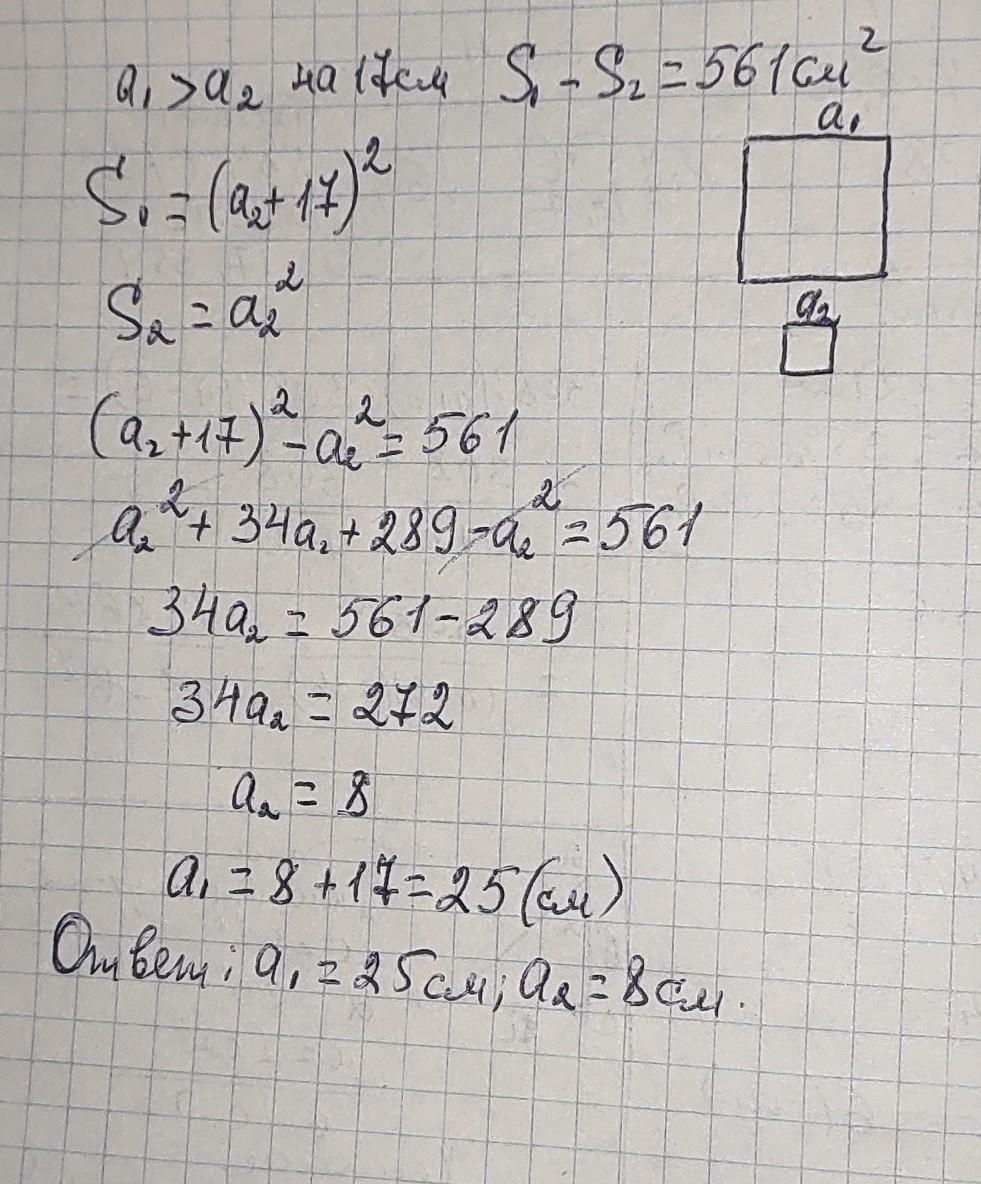 a₁ > a₂ на 17см S₁ - S₂ = 561см²
a₁
S₁ = (a₂+17)²
S₂ = a₂²
a₂
(a₂+17)² - a₂² = 561
a₂² + 34a₂ + 289 - a₂² = 561
34a₂ = 561 - 289
34a₂ = 272
a₂ = 8
a₁ = 8 + 17 = 25 (см)
Ответ: a₁ = 25см; a₂ = 8см.